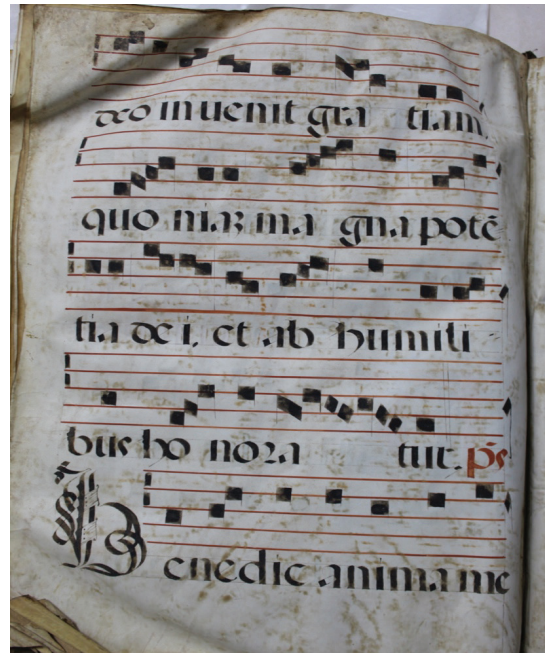 deo inuenit gratiam.
quoniaꝫ magna potē
tia dei, et ab humili
bus honoratur. p̄s
Benedic anima me